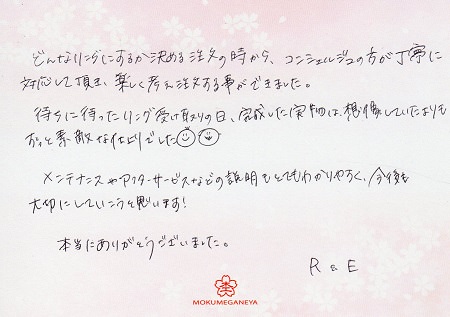 どんなリングにするか決める注文の時から、コンシェルジュの方が丁寧に
対応して頂き、楽しく考え注文する事ができました。
待ちに待ったリング受け取りの日、完成した実物は、想像していたよりも
ずっと素敵な仕上りでした
メンテナンスやアフターサービスなどの説明もとてもわかりやすく、今後も
大切にしていこうと思います!
本当にありがとうございました。
R & E
MOKUMEGANEYA